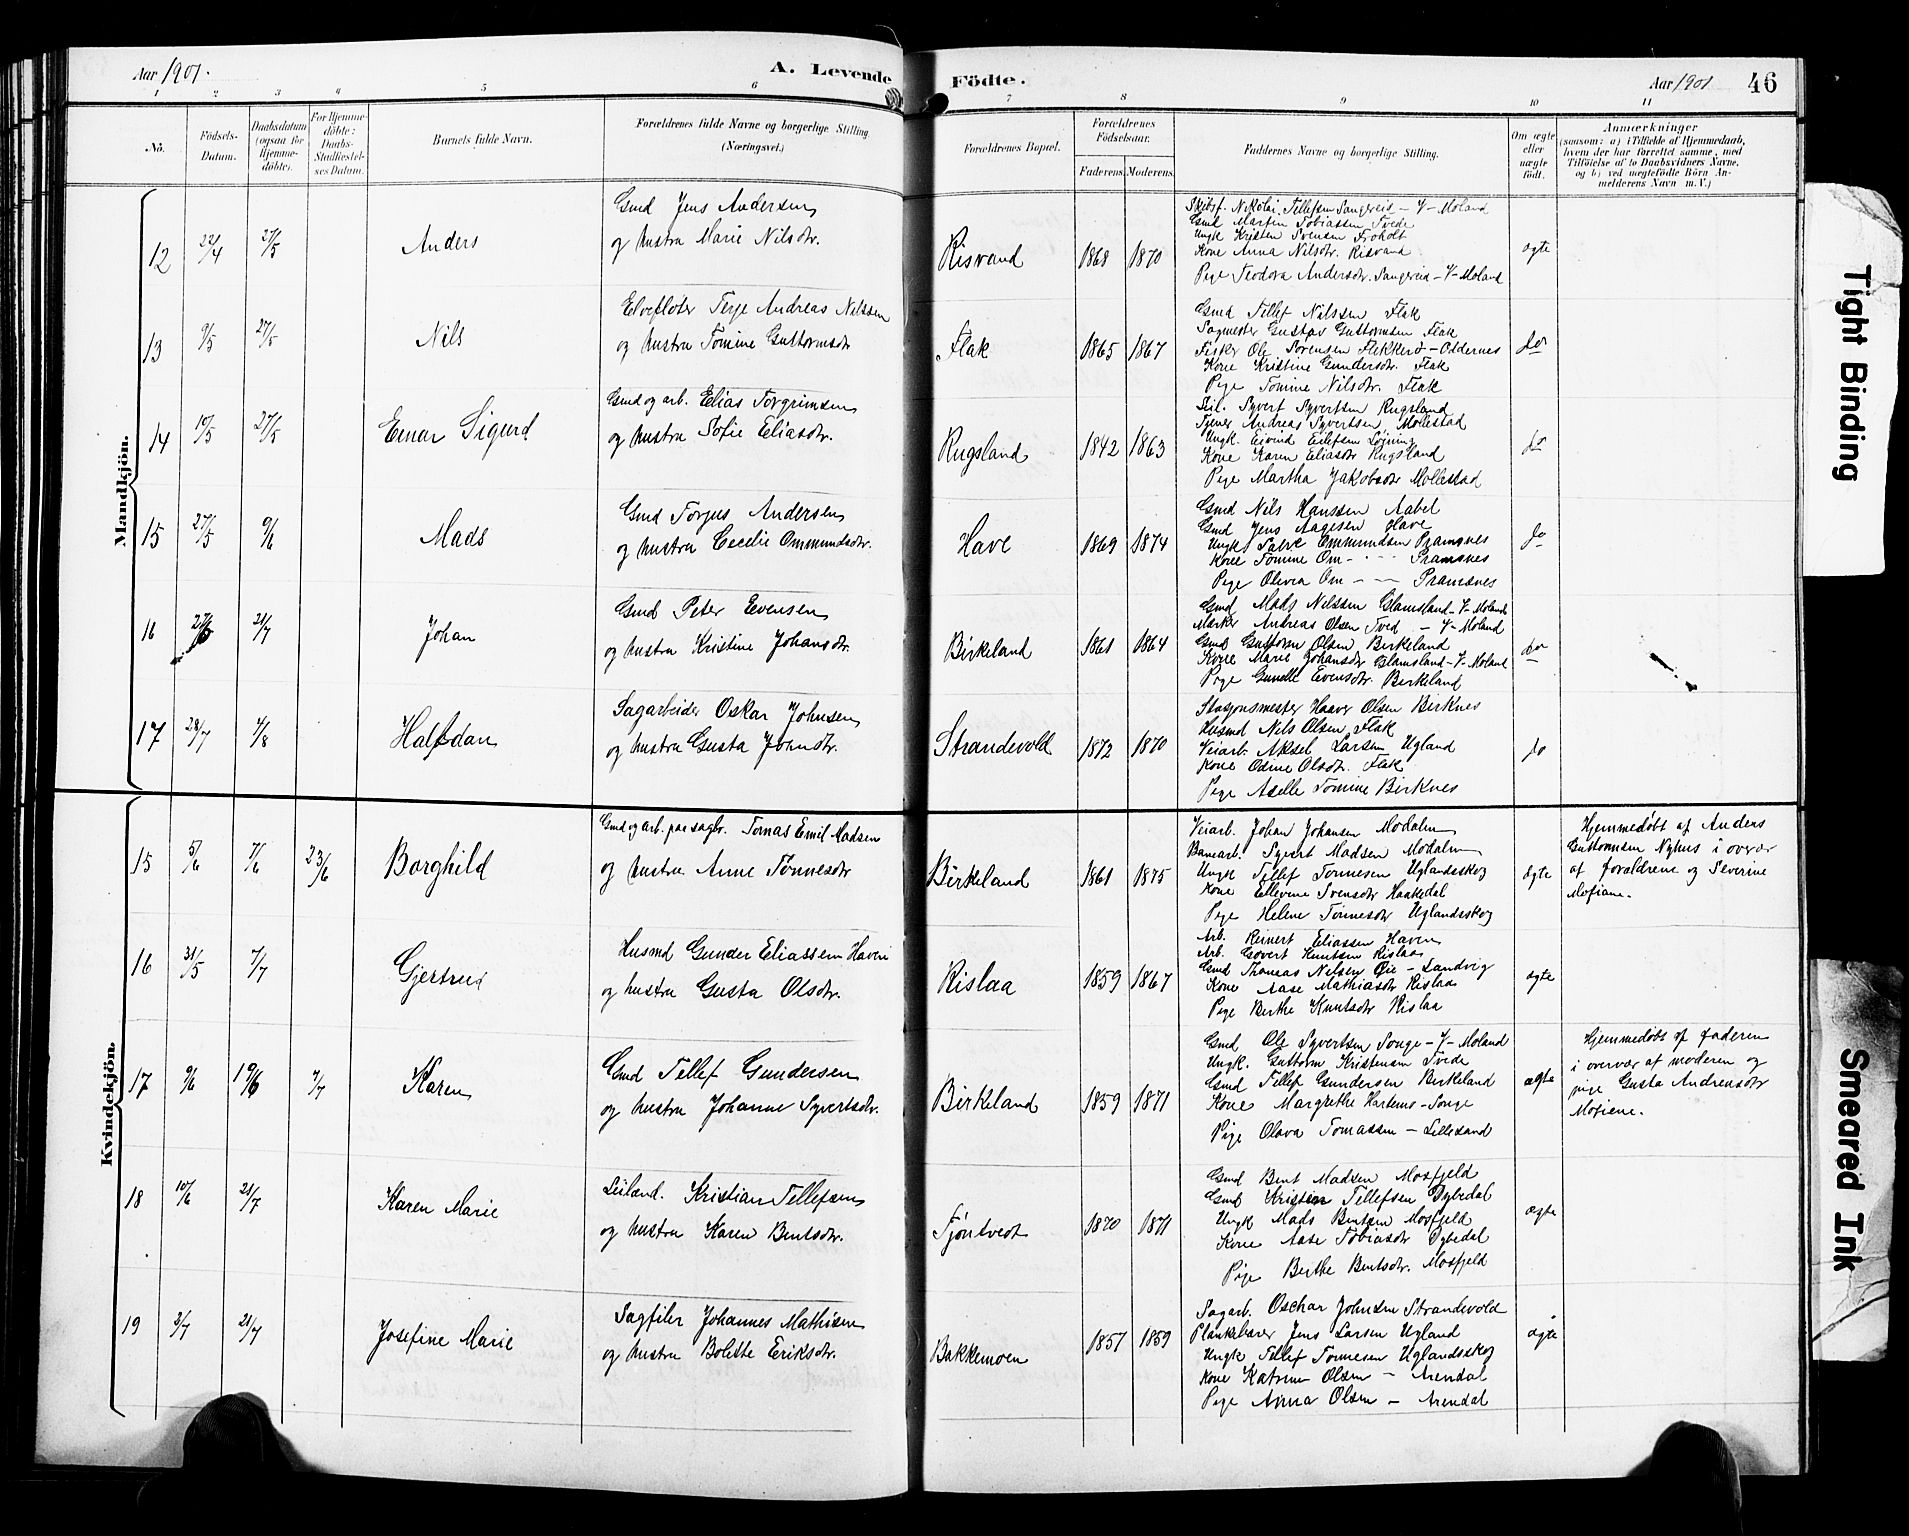 Aar 1901. A. Levende Födte. Aar 1901 46
1 2 3 4 5 6 7 8 9 10 11
No. Födsels-Datum. Daabsdatum (ogsaa for Hjemme-döbte). For Hjemme-döbte: Daabs-Stadfæstel-ses Datum. Barnets fulde Navn. Forældrenes fulde Navne og borgerlige Stilling (Næringsvei.) Forældrenes Bopæl. Forældrenes Födselsaar. Faderens Moderens. Faddernes Navne og borgerlige Stilling. Om ægte eller uægte födt. Anmærkninger
(saasom: a) i Tilfælde af Hjemmedaab,
hvem der har forrettet samme, med
Tilföielse af to Daabsvidners Navne,
og b) ved uegtefödte Börn An-
melderens Navn m. V.)
Mandkjön.
12 22/4 27/5 Anders
Gmd Jens Andersen
og hustru Marie Nilsdtr.
Risvand 1868 1870
Skibsf. Nikolai Tellefsen Sangereid - V-Moland
Gmd Martin Tobiassen Tvede
Ungk Kristen Svensen Froholt
Kone Anna Nilsdtr. Risvand
Pige Teodora Andersdtr. Sangereid - V-Moland
ægte
13 9/5 27/5 Nils
Elvefløter Terje Andreas Nilssen
og hustru Tomine Guttormsdtr
Flak 1865 1867
Gmd Tellef Nilssen Flak
Sagmester Gustav Guttormsen Flak
Fisker Ole Sørensen Flekkerø - Oddernes
Kone Kristine Gundersdtr. Flak
Pige Tomine Nilsdtr. Flak
do
14 10/5 27/5 Einar Sigurd
Gmd og arb. Elias Torgrimsen
og hustru Sofie Eliasdtr.
Rugsland 1842 1863
Leil. Syvert Syvertsen Rugsland
Tjener Andreas Syvertsen Mollestad
Ungk. Eivind Eilefsen Løining
Kone Karen Eliasdtr Rugsland
Pige Martha Jakobsdtr Mollestad
do
15 27/5 9/6 Mads
Gmd Torjus Andersen
og hustru Cecelie Ommundsdtr.
Have 1869 1874
Gmd Nils Hanssen Aabel
Gmd Jens Aagesen Have
Ungk Salve Ommundsen Pramsnes
Kone Tomine Om- - - Pramsnes
Pige Olivia Om - - - Pramsnes
do
16 21/7 Johan
Gmd Peter Evensen
og hustru Kristine Johansdtr.
Birkeland 1861 1864
Gmd Mads Nilssen Glamsland - V-Moland
Mærker Andreas Olsen Tved - V-Moland
Gmd Guttorm Olsen Birkeland
Kone Marie Johansdtr Glamsland - V-Moland
Pige Gunelle Evensdtr. Birkeland
do
17 28/7 4/8 Halfdan
Sagarbeider Oskar Johnsen
og hustru Gusta Johndtr.
Strandevold 1872 1870
Stasjonsmester Haaver Olsen Birknes
Husmd Nils Olsen Flak
Veiarb. Aksel Larsen Ugland
Kone Odine Olsdtr. Flak
Pige Aselle Tomine Birknes
do
Kvindekjön.
15 5/6 7/6 23/6 Borghild
Gmd og arb. paa sagbr. Tomas Emil Madsen
og hustru Anne Tønnesdtr
Birkeland 1861 1875
Veiarb. Johan Johansen Modalen
Banearb. Syvert Madsen Modalen
Ungk Tellef Tønnesen Uglandsskog
Kone Ellevine Svensdtr Haakedal
Pige Helene Tønnesdtr Uglandsskog
ægte
Hjemmedøbt af Anders
Guttormsen Nyhus i overvær
af forældrene og Severine
Mofiane.
16 31/5 7/7 Gjertrud
Husmd Gunder Eliassen Haven
og hustru Gusta Olsdtr.
Rislaa 1859 1867
Arb. Reinert Eliassen Haven
Arb. Govert Knutsen Rislaa
Gmd Thomas Nilsen Øie - Landvig
Kone Aase Mathiasdtr Rislaa
Pige Berthe Knutsdtr Rislaa
ægte
17 9/6 19/6 7/7 Karen
Gmd Tellef Gundersen
og hustru Johanne Syvertsdtr.
Birkeland 1859 1871
Gmd Ole Syvertsen Songe - V-Moland
Ungk. Guttorm Kristensen Tvede
Gmd Tellef Gundersen Birkeland
Kone Margrethe Hartems - Songe
Pige Olava Tomassen - Lillesand
ægte
Hjemmedøbt af faderen
i overvær af moderen og
pige Gusta Andreasdtr
Mofiene.
18 10/6 21/7 Karen Marie
Leilænd. Kristian Tellefsen
og hustru Karen Bentsdtr.
Tjøntvedt 1870 1871
Gmd Bent Madsen Mosfjeld
Gmd Kristen Tellefsen Dybedal
Ungk Mads Bentsen Mosfjeld
Kone Aase Tobiasdtr Dybedal
Pige Berthe Bentsdtr. Mosfjeld
ægte
19 3/7 21/7 Josefine Marie
Sagfiler Johannes Mathisen
og hustru Bolette Eriksdtr.
Bakkemoen 1857 1859
Sagarb. Oschar Johnsen Strandevold
Plankebærer Jens Larsen Ugland
Ungk Tellef Tønnesen Uglandsskog
Kone Katrine Olsen - Arendal
Pige Anna Olsen - Arendal
ægte
Tight Binding
Smeared Ink